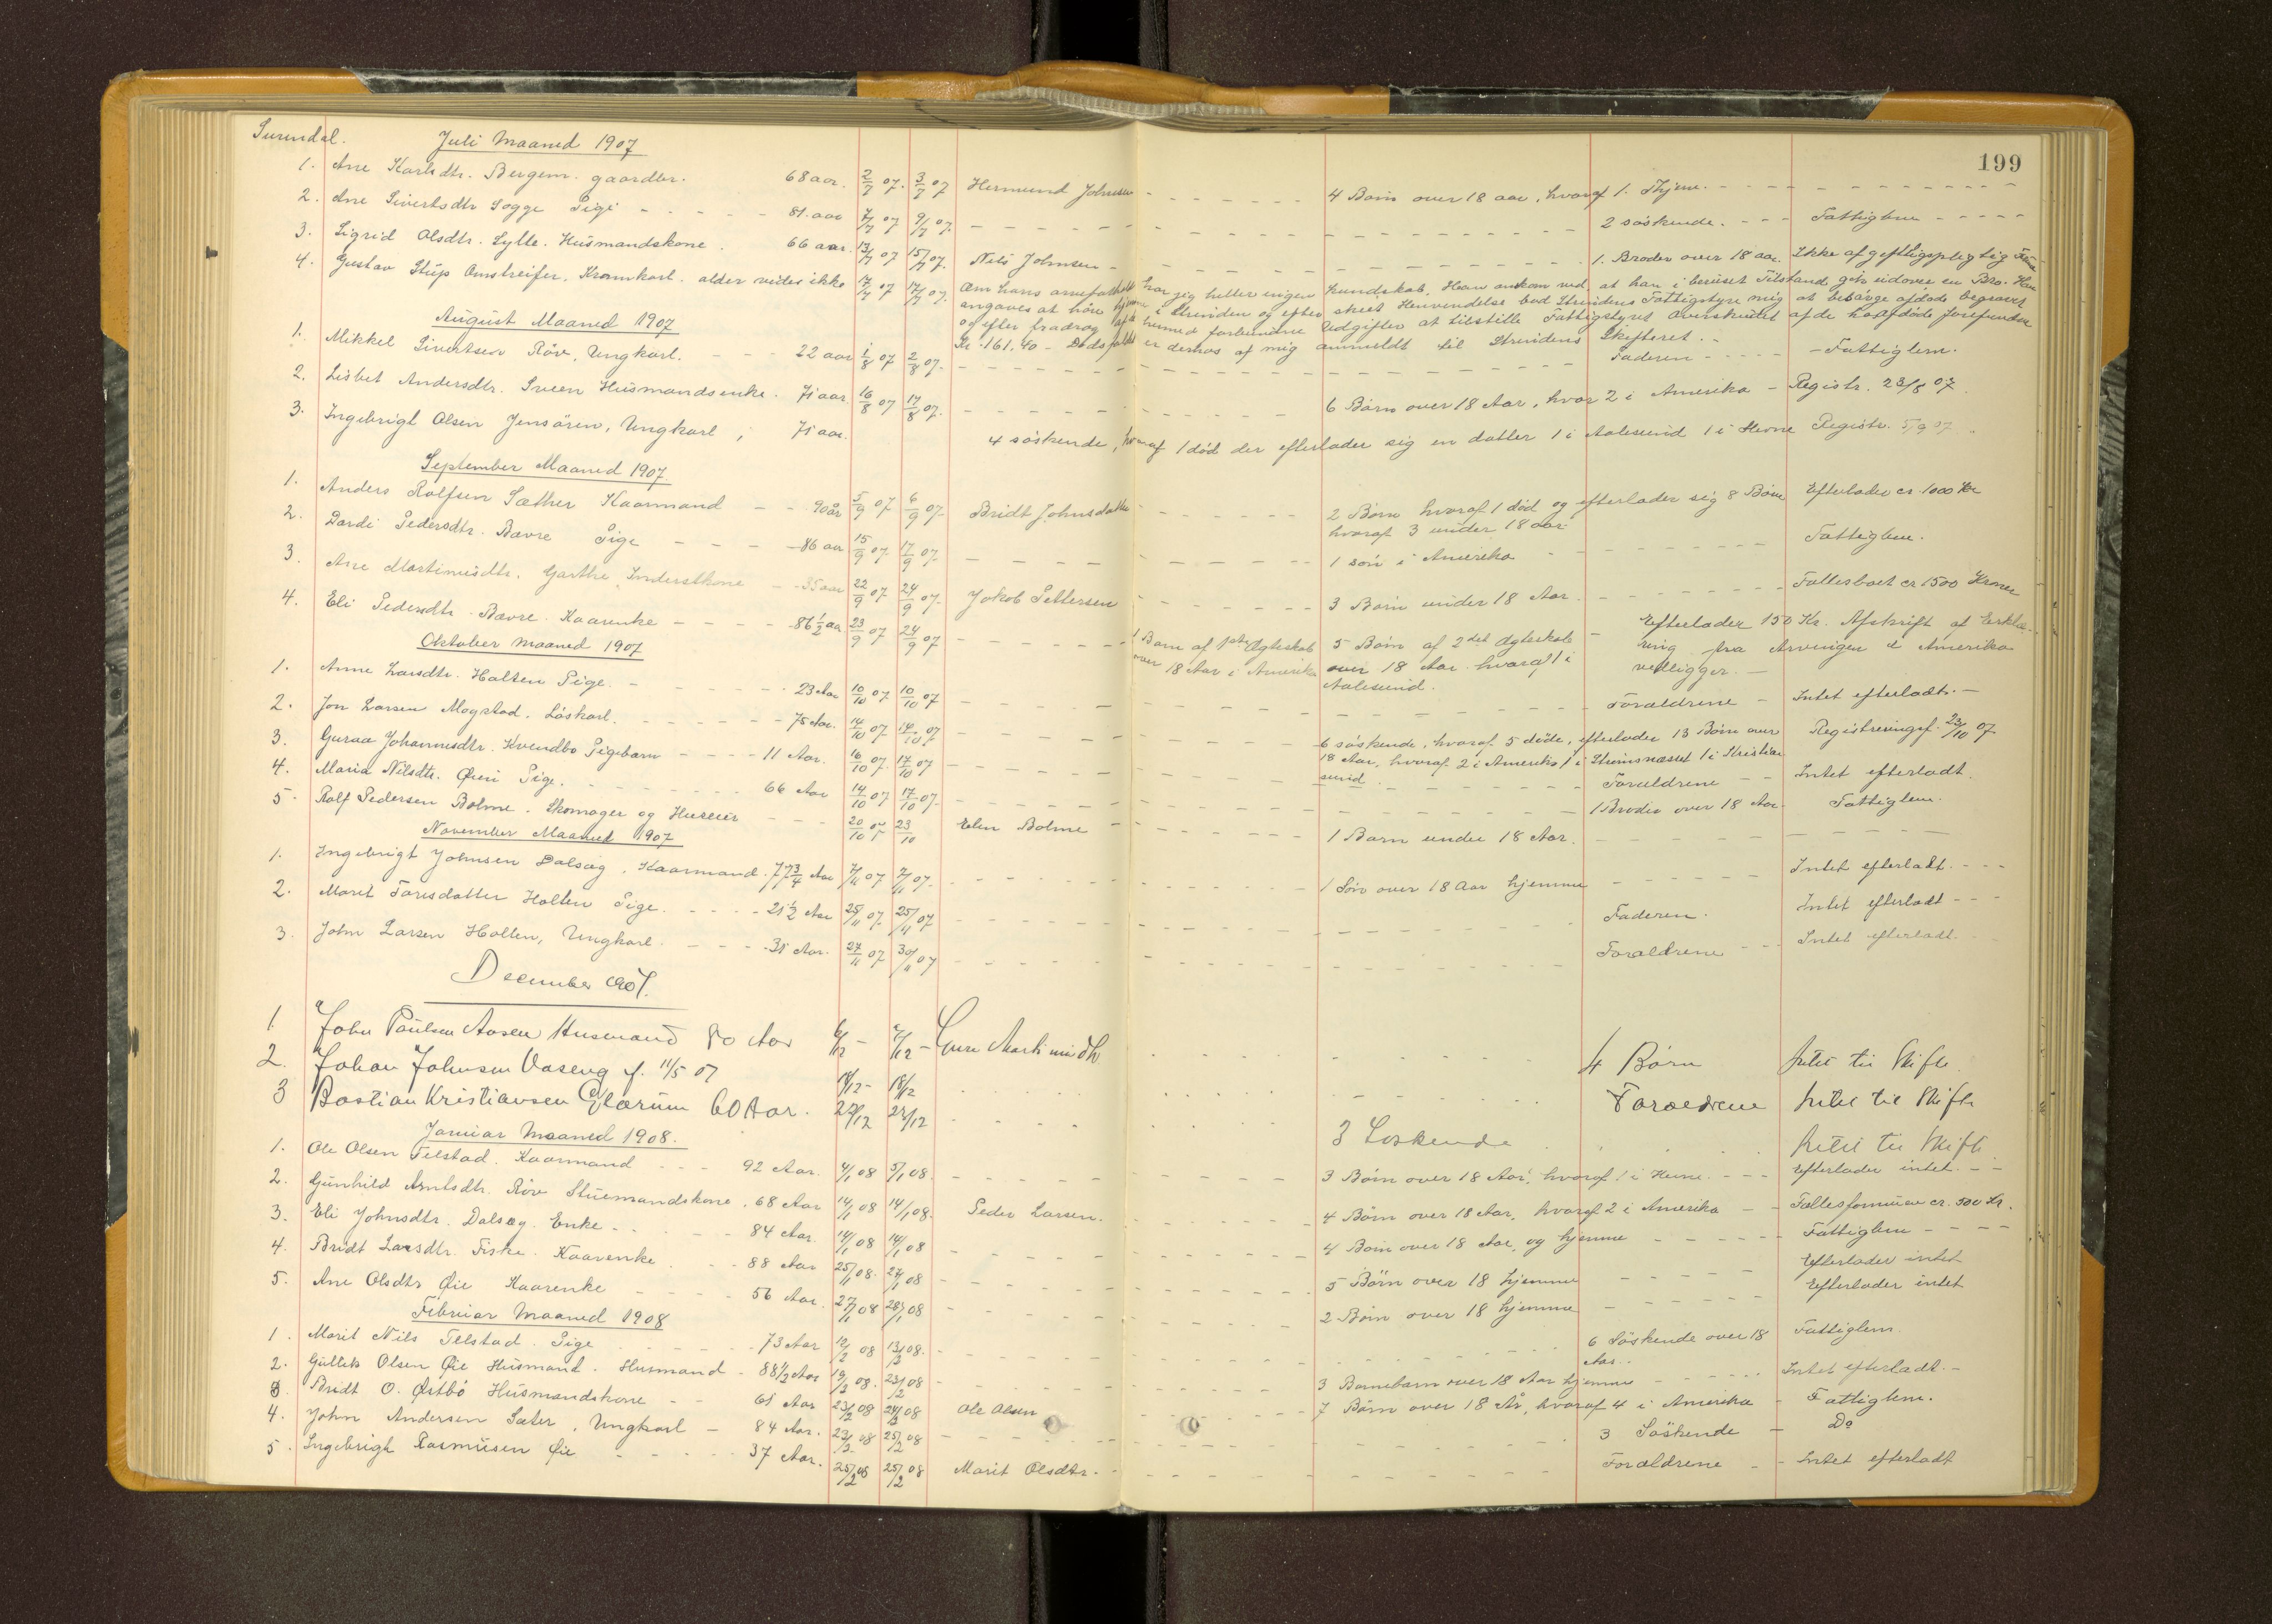 199
Surendal. Juli Maaned 1907
1. Ane Karlsdtr. Bergem. gaardbr. 68 aar. 2/7 07. 3/7 07 Hermund Johnsen - - - - - - 4 Børn over 18 aar, hvoraf 1. Hjem. - - -
2. Ane Sivertsdtr Sogge Pige - - - - 81. aar 7/7 07 9/7 07. - - - - 2 søskende. - - - Fattiglem - - - -
3. Sigrid Olsdtr. Sylte. Husmandskone. 66 aar. 13/7 07 15/7 07. Nils Johnsen - - - - 1. Broder over 18 aar. Ikke afgeftigspligtig
4. Gustav Stup Omstreifer. Kramkarl. alder vides ikke 17/7 07 17/7 07. Om hans arveforhold har jeg heller ingen kundskab. Han omkom ved, at han i beruset Tilstand gik udover en Bro. Han
angaves at høre hjemme i Strinden og efter skeet Henvendelse bad Strindens Fattigstyre mig at besørge afdøde begravet
og efter fradrag af de hermed forbundne Udgifter at tilstille Fattigstyret Overskudet af de hos afdøde forefundne
Kr. 161.40 - Dødsfaldet er dernæs af mig anmeldt til Strindens Skifteret. -
August Maaned 1907
1. Mikkel Sivertsen Røv, Ungkarl. - - - 22 aar 1/8 07 2/8 07. - - - - Faderen - - - - Fattiglem.
2. Lisbet Andersdtr. Sveen Husmandsenke. 71 aar. 16/8 07 17/8 07. - - - - 6 Børn over 18 Aar, hvor 2 i Amerika - Registr. 23/8 07.
3. Ingebrigt Olsen Jensøren, Ungkarl, 71 aar. 4 søskende, hvoraf 1 død der efterlader sig en datter 1 i Aalesund 1 i Hevne Registr. 5/9 07
September Maaned 1907.
1. Anders Rolfsen Sæther Kaarmand - - 90 år 5/9 07 6/9 07. Bridt Johnsdatter - - - - 2 Børn hvoraf 1 død og efterlader sig 8 Børn Efterlader ca. 1000 Kr
hvoraf 3 under 18 aar.
2. Dordi Pedersdtr. Bævre Pige - - - - 86 aar 15/9 07 17/9 07. - - - - 1 søn i Amerika - - - - Fattiglem.
3. Ane Martinusdtr. Garthe Inderstkone - - 35 aar 22/9 07 24/9 07. Jakob Pettersen - - - - 3 Børn under 18 Aar. - - - - Fallesboet ca 1500 Kroner
4. Eli Pedersdtr. Bævre. Kaarenke - - - - 86 1/2 aar 23/9 07 24/9 07 - - - - 1 Barn af 1ste Ægteskab 5 Børn af 2det Ægteskab - Efterlader 150 Kr. Afskrift af Erklæ-
over 18 Aar i Amerika over 18 Aar. hvoraf 1 i ring fra Arvingen i Amerika
Aalesund. vedligger. -
Oktober Maaned 1907
1. Anne Larsdtr. Halten Pige. - - - - 23 Aar 10/10 07 10/10 07 - - - - Forældrene - Intet efterladt. -
2. Jon Larsen Mogstad. Løskarl. - - - - 75 Aar. 14/10 07 14/10 07 - - - - 6 søskende, hvoraf 5 døde, efterlader 13 Børn over Registreringsf. 23/10 07.
18 Aar, hvoraf 2 i Amerika 1 i Strømsnæsset 1 i Kristian
sund.
3. Guraa Johannesdtr. Kvendbø Pigebarn - - - - 11 Aar. 16/10 07. 17/10 07 - - - - Forældrene - - Intet efterladt.
4. Maria Nilsdtr. Øien Pige. - - - - 66 Aar 14/10 07 17/10 07. - - - - 1 Broder over 18 Aar. Fattiglem.
5. Rolf Pedersen Bolme. Skomager og Huseier - - - 20/10 07 23/10 Elen Bolme - - - - 1 Barn under 18 Aar. - - - -
November Maaned 1907
1. Ingebrigt Johnsen Dalsæg. Kaarmand. 77 3/4 Aar 7/11 07 7/11 07. - - - - 1 Søn over 18 Aar hjemme - - - - Intet efterladt. - - -
2. Marit Toresdatter Holten Pige. - - - - 21 1/2 Aar 25/11 07. 25/11 07 - - - - Faderen. Intet efterladt - - -
3. John Larsen Holten, Ungkarl. - - - - 31 Aar. 27/11 07 30/11 07 - - - - Forældrene - - - Intet efterladt.
December 1907.
1. John Paulsen Aasen Husmand 80 Aar 6/12 - 7/12 - Guru 4 Børn Intet til Skifte
2. Johan Johnsen Vaseng f. 11/5 07 18/12 - 18/12 Forældrene Intet til Skifte
3 Bastian Kristiansen Glærum 60 Aar. 22/12 27/12 3 Søskende Intet til Skifte
Januar Maaned 1908.
1. Ole Olsen Telstad. Kaarmand - - - 92 Aar. 4/1 08 5/1 08. - - - - 3 Børn over 18 Aar, hvoraf 1 i Hevne. - - - Efterlader intet. - -
2. Gunhild Arntsdtr. Røv Stuemandskone. 68 Aar 14/1 08 14/1 08. Peder Larsen. - - - - 4 Børn over 18 Aar, hvoraf 2 i Amerika - - Fallesformuen ca. 500 Kr.
3. Eli Johnsdtr. Dalsæg. Enke - - - - 84 Aar. 14/1 08 14/1 08 - - - - 4 Børn over 18 Aar, og hjemme - - - - Fattiglem - - - -
4. Bridt Larsdtr. Fiske. Kaarenke. - - 88 Aar 25/1 08. 27/1 08 - - - - 5 Børn over 18 hjemme - - - - Efterlader intet
5. Ane Olsdtr Øie Kaarenke - - - - 56 Aar. 27/1 08 28/1 08 - - - - 2 Børn over 18 hjemme - - - - Efterlader intet
Februar Maaned 1908
1. Marit Nils Telstad. Pige - - - - 73 Aar 12/2 08 13/2 08. - - - - 6 Søskende over 18 Fattiglem.
Aar.
2. Gullik Olsen Øie Husmand. Husmand - 88 1/2 Aar 19/2 08. 23/2 08 - - - - 3 Barnebarn over 18 Aar hjemme - - - - Intet efterladt. -
3. Bridt O. Østbø Husmandskone - - 61 Aar 23/2 08 24/2 08 Ole Olsen - - - - 7 Børn over 18 År, hvoraf 4 i Amerika - Fattiglem.
4. John Andersen Sæter, Ungkarl - 84 Aar. 23/2 08 25/2 08 - - - - 3 Søskende - Do
5. Ingebrigt Rasmusen Øie - - - - 37 Aar. 25/2 08 25/2 08 Marit Olsdtr. - - - - Forældrene - - Intet efterladt